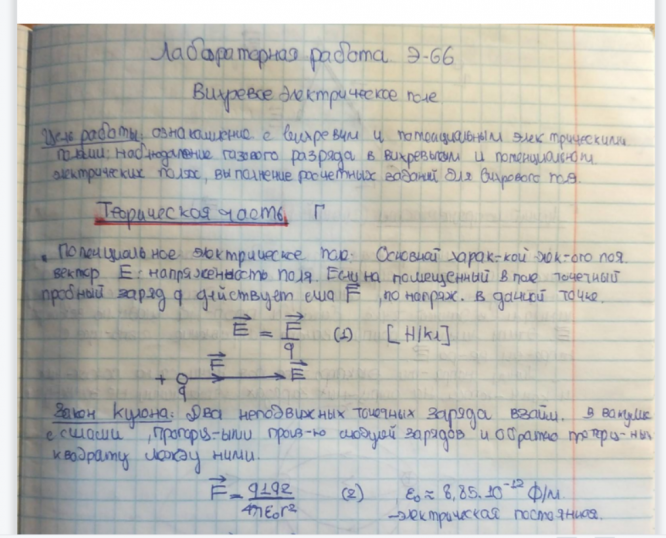 Лабораторная работа Э-66
Вихревое электрическое поле
Цель работы: ознакомление с вихревым и потенциальным электрическими
полями; наблюдение газового разряда в вихревом и потенциальном
электрических полях, выполнение расчетных заданий для вихрового поля.
Теорическая часть Г
• Потенциальное электрическое поле: Основной харак-кой элек-ого поля
вектор E: напряженность поля. Если на помещенный в поле точечный
пробный заряд q действует сила F⃗, по напряж. в данной точке.
E⃗ = F⃗/q (1) [Н/кл]
F⃗
+ q E⃗
Закон Кулона: Два неподвижных точечных заряда взайм. в вакууме
с силами, пропорц-ыми произ-ю модулей зарядов и обратно пропорц-ных
квадрату между ними.
F⃗ = q1q2/4πε₀r² (2) ε₀ ≈ 8,85·10⁻¹² Ф/м
-электрическая постоянная.